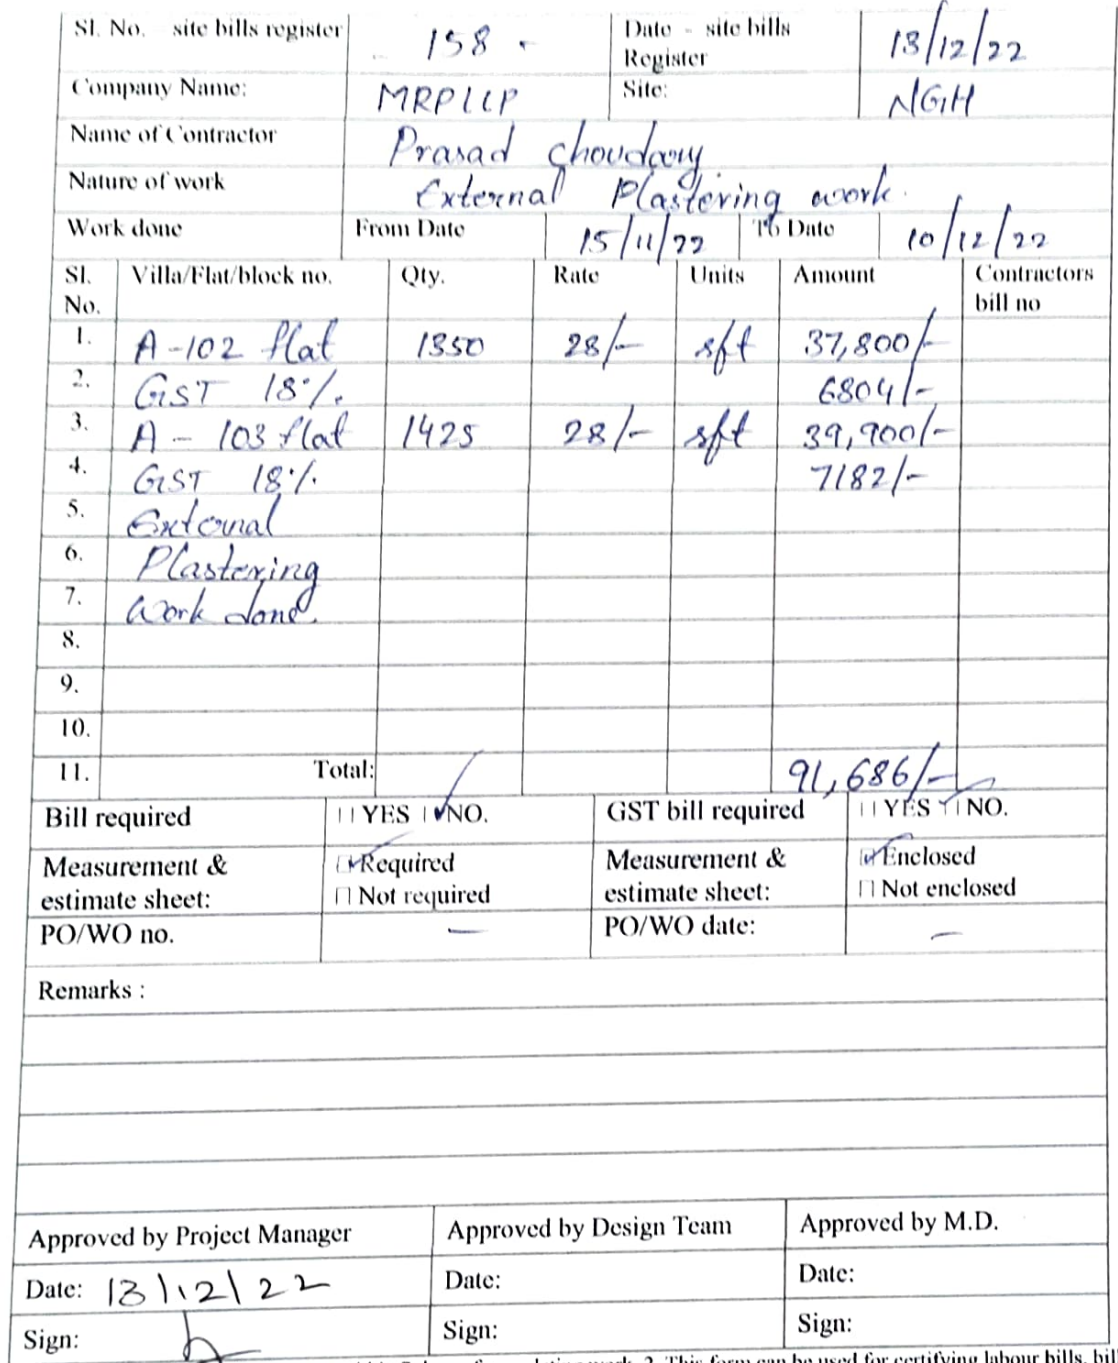 Sl. No. - site bills register 158 - Date - site bills Register 13/12/22
Company Name: MRPLLP Site: NGH
Name of Contractor Prasad Choudary
Nature of work External Plastering work.
Work done From Date 15/11/22 To Date 10/12/22
Sl. No. Villa/Flat/block no. Qty. Rate Units Amount Contractors bill no
1. A-102 flat 1350 28/- sft 37,800/-
2. GST 18%. 6804/-
3. A - 103 flat 1425 28/- sft 39,900/-
4. GST 18% 7182/-
5. External
6. Plastering
7. Work done.
8.
9.
10.
11. Total: 91,686/-
Bill required □ YES ☑ NO. GST bill required □ YES ☑ NO.
Measurement & estimate sheet: ☑ Required □ Not required Measurement & estimate sheet: ☑ Enclosed □ Not enclosed
PO/WO no. — PO/WO date: —
Remarks :
Approved by Project Manager Approved by Design Team Approved by M.D.
Date: 13/12/22 Date: Date:
Sign: Sign: Sign:
2. This form can be used for certifying labour bills,